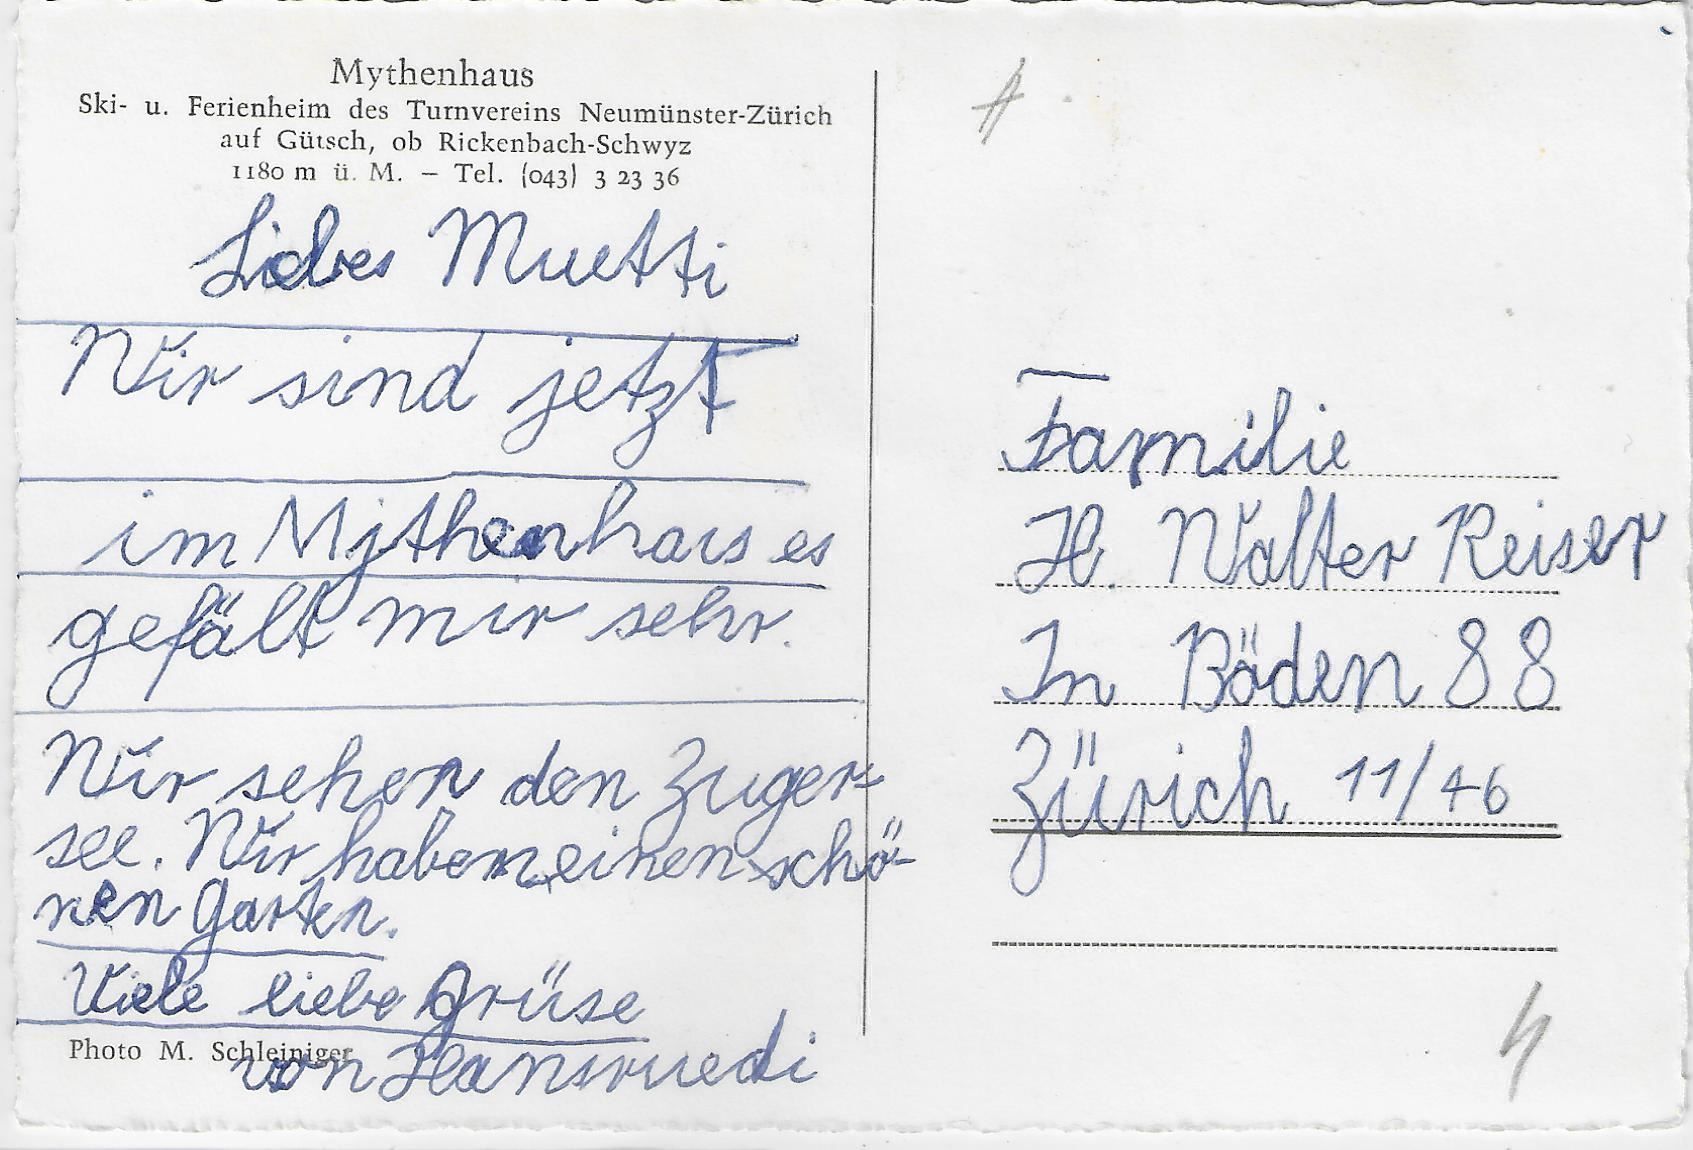 Mythenhaus
Ski- u. Ferienheim des Turnvereins Neumünster-Zürich
auf Gütsch, ob Rickenbach-Schwyz
1180 m ü. M. – Tel. (043) 3 23 36
Liebes Muetti
Wir sind jetzt
im Mythenhaus es
gefält mir sehr.
Wir sehen den Zuger-
see. Wir haben einen schö-
nen Garten.
Viele liebe Grüse
von Hansruedi
Photo M. Schleiniger
Familie
H. Walter Reiser
In Böden 88
Zürich 11/46